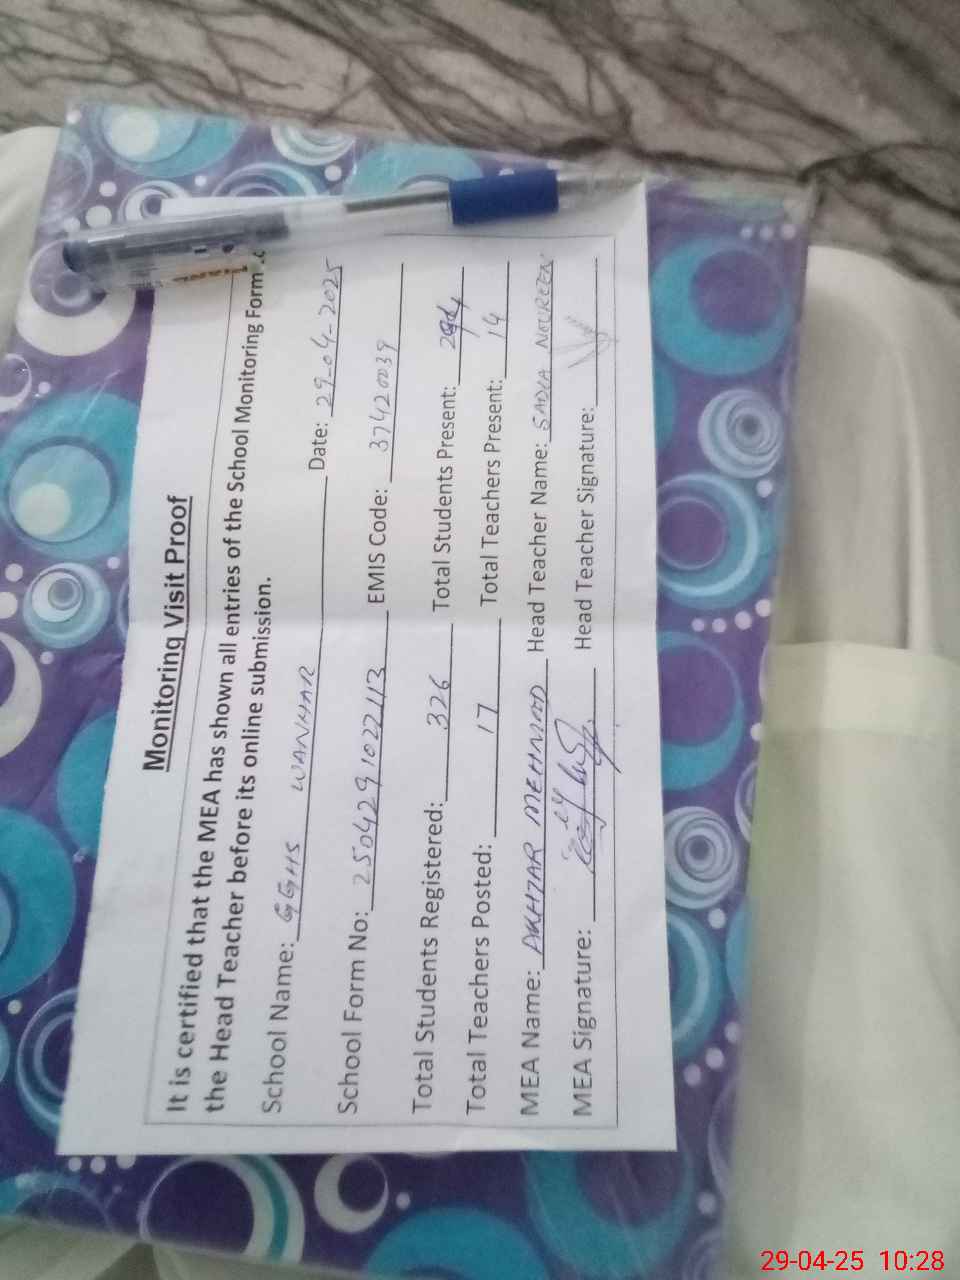 Monitoring Visit Proof
It is certified that the MEA has shown all entries of the School Monitoring Form
the Head Teacher before its online submission.
School Name: GGHS WANHAR Date: 29-04-2025
School Form No: 250429102243 EMIS Code: 37420039
Total Students Registered: 326 Total Students Present:
Total Teachers Posted: 17 Total Teachers Present: 14
MEA Name: AKHTAR MEHMOOD Head Teacher Name: SADIA NOUREEN
MEA Signature: Head Teacher Signature:
PIANO
29-04-25 10:28